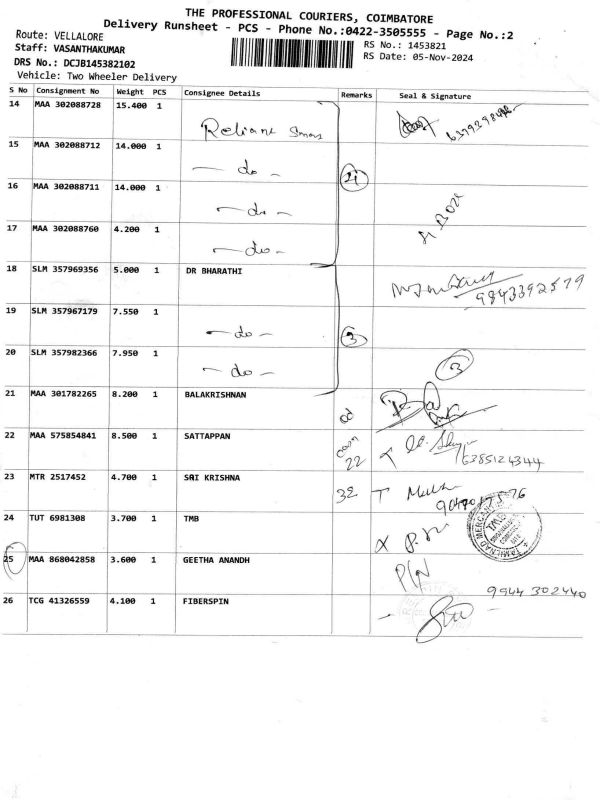 THE PROFESSIONAL COURIERS, COIMBATORE
Delivery Runsheet - PCS - Phone No.:0422-3505555 - Page No.:2
Route: VELLALORE
RS No.: 1453821
Staff: VASANTHAKUMAR
RS Date: 05-Nov-2024
DRS No.: DCJB145382102
Vehicle: Two Wheeler Delivery
S No Consignment No Weight PCS Consignee Details Remarks Seal & Signature
14 MAA 302088728 15.400 1 Reliance
15 MAA 302088712 14.000 1 - do -
16 MAA 302088711 14.000 1 - do - 4
17 MAA 302088760 4.200 1 - do -
18 SLM 357969356 5.000 1 DR BHARATHI 9843392579
19 SLM 357967179 7.550 1 - do - 3
20 SLM 357982366 7.950 1 - do - 3
21 MAA 301782265 8.200 1 BALAKRISHNAN
22 MAA 575854841 8.500 1 SATTAPPAN 22 6385124344
23 MTR 2517452 4.700 1 SRI KRISHNA 32
24 TUT 6981308 3.700 1 TMB
25 MAA 868042858 3.600 1 GEETHA ANANDH 9944 302440
26 TCG 41326559 4.100 1 FIBERSPIN